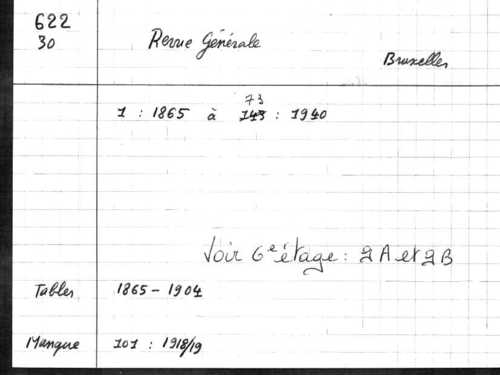 622
30
Revue Générale
Bruxelles
73
1 : 1865 à 143 : 1940
Voir 6e étage : 2A et 2B
Tables 1865 - 1904
Manque 101 : 1918/19